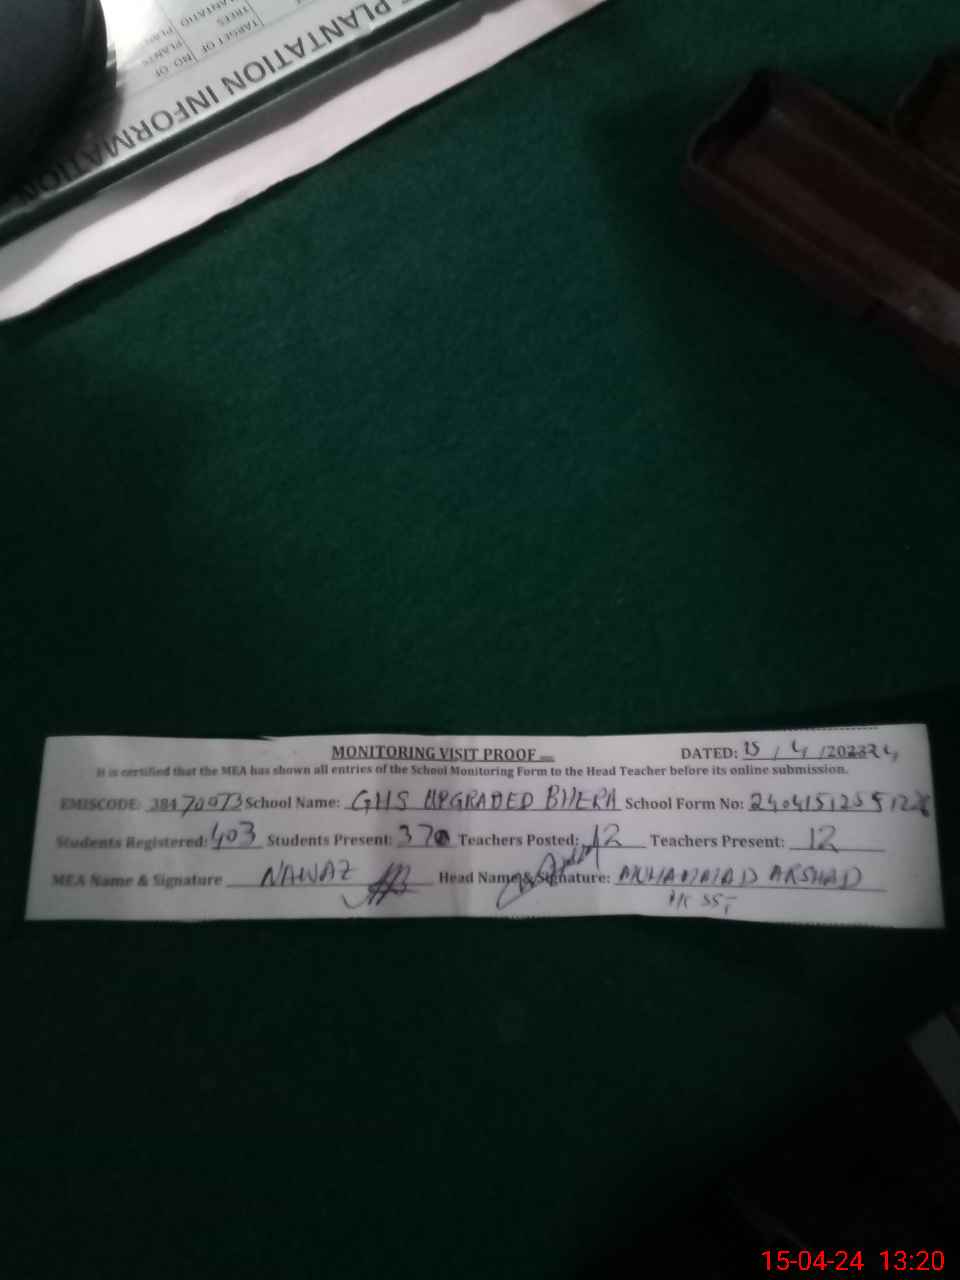 PLANTATION INFORMATION
NO. OF
PLANTS
TARGET OF
TREES
MONITORING VISIT PROOF
DATED: 15 / 4 /202324
It is certified that the MEA has shown all entries of the School Monitoring Form to the Head Teacher before its online submission.
EMISCODE: 38470073 School Name: GHS UPGRADED BHERA School Form No:
Students Registered: 403 Students Present: 370 Teachers Posted: 12 Teachers Present: 12
MEA Name & Signature NAWAZ Head Name & Signature: MUHAMMAD ARSHAD
SST
15-04-24 13:20